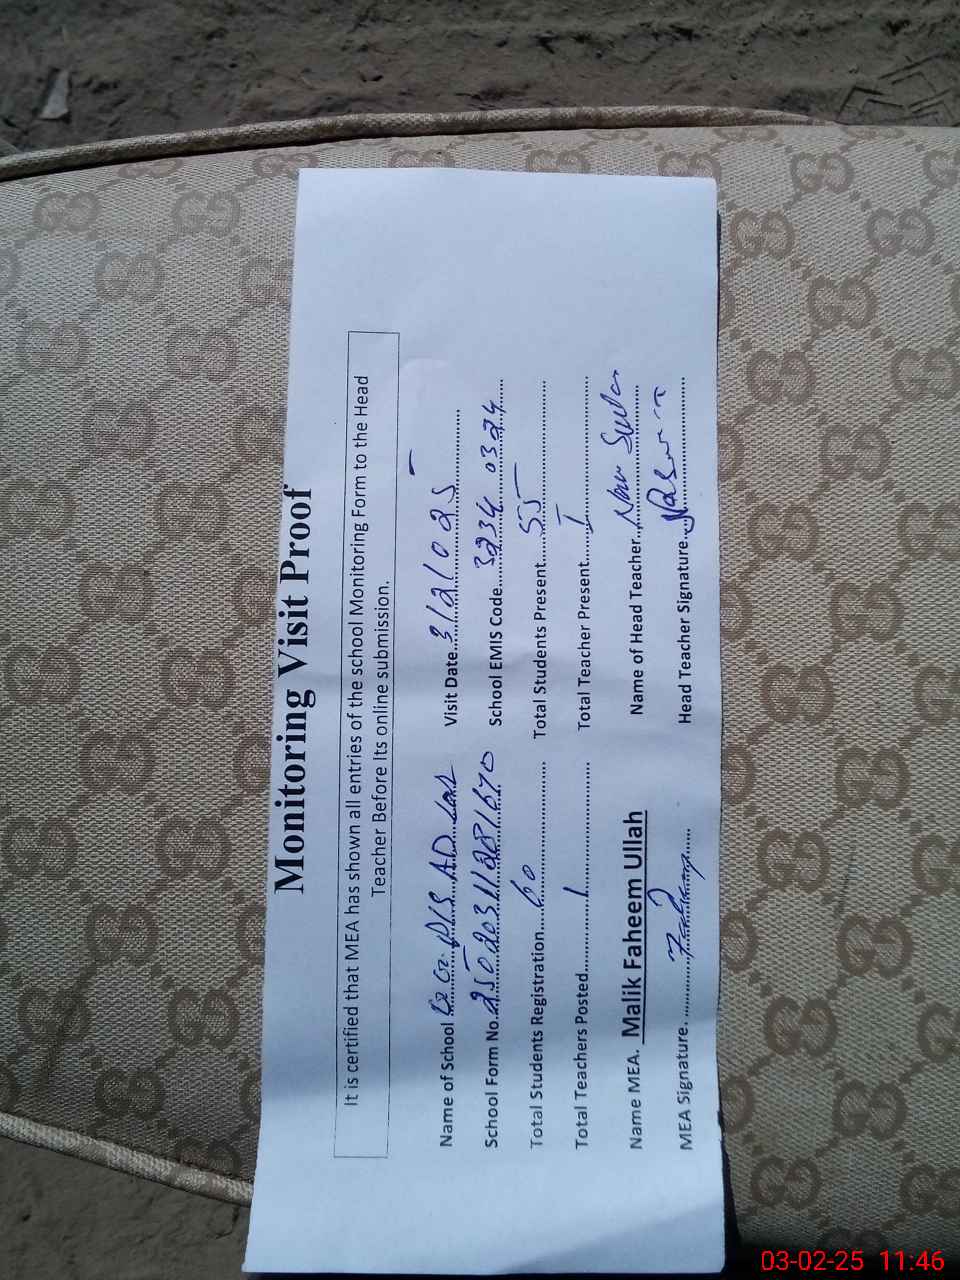 Monitoring Visit Proof
It is certified that MEA has shown all entries of the school Monitoring Form to the Head
Teacher Before Its online submission.
Name of School AD Visit Date 3/2/025
School Form No. 25020311281670 School EMIS Code 3234 0324
Total Students Registration 60 Total Students Present 55
Total Teachers Posted 1 Total Teacher Present 1
Name MEA. Malik Faheem Ullah Name of Head Teacher
MEA Signature. Head Teacher Signature.
03-02-25 11:46